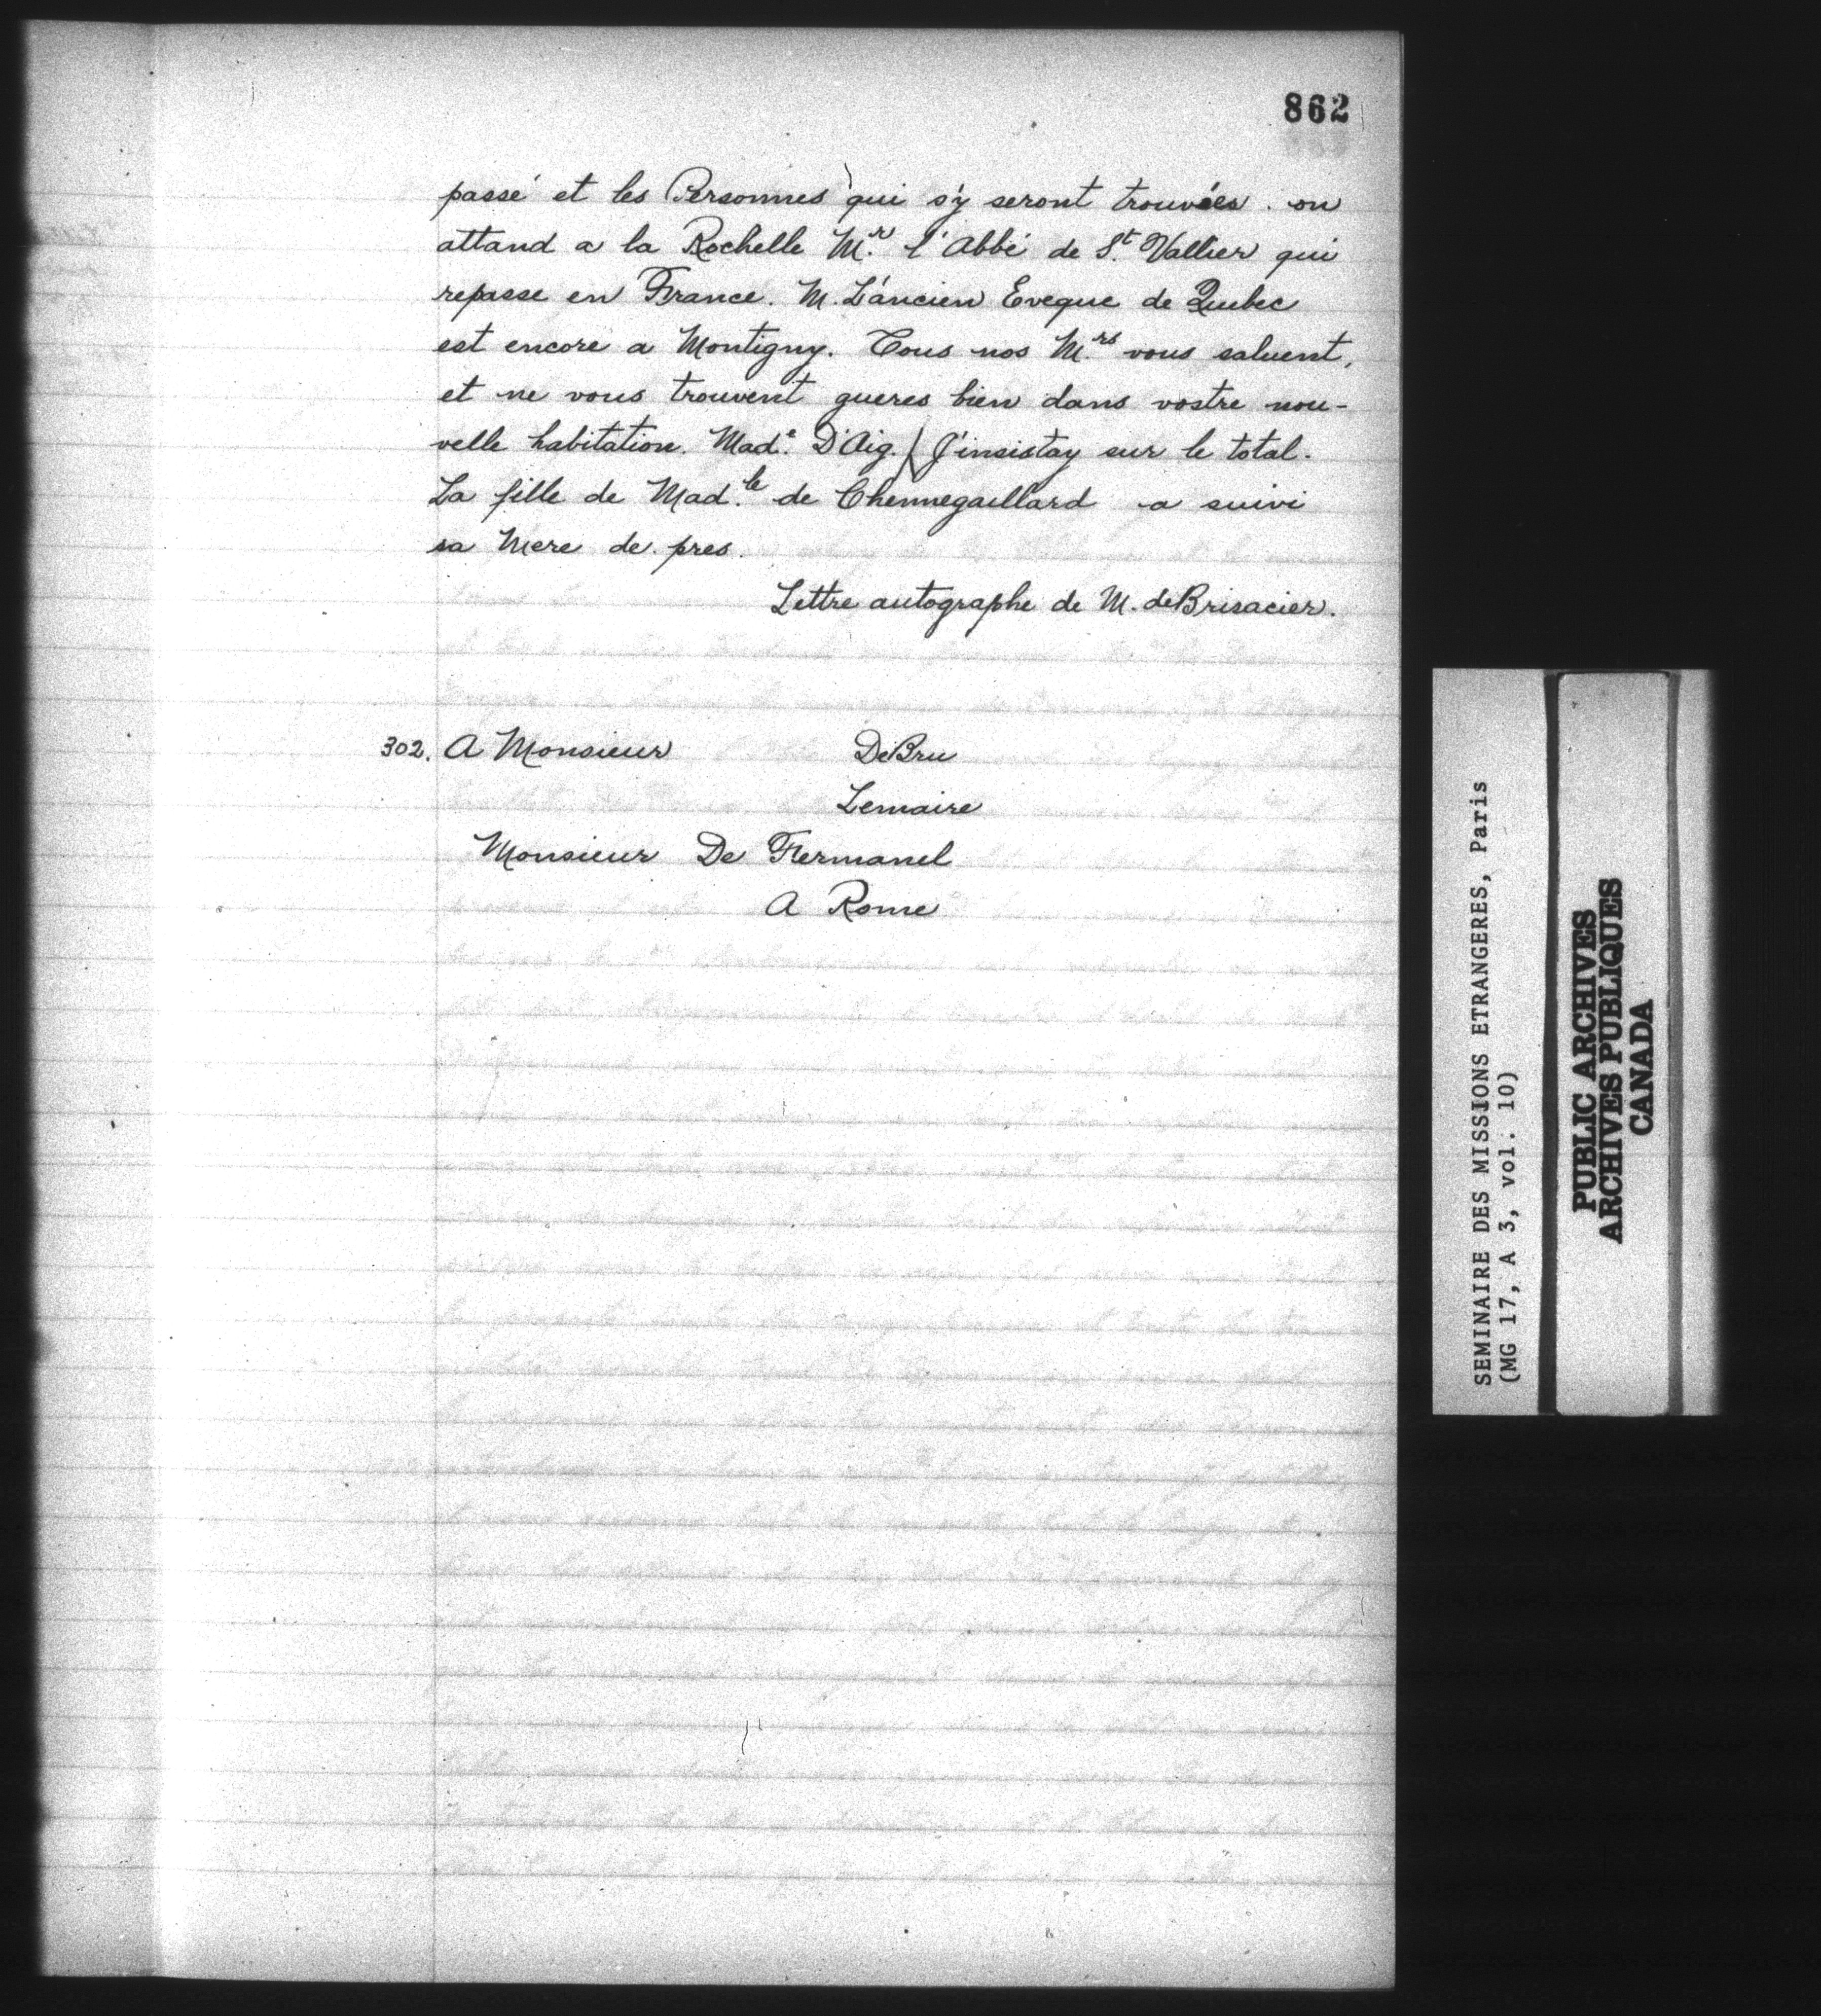 862
passé et les Personnes qui s'y seront trouvées. on
attand a la Rochelle M.r l'Abbé de S.t Vallier qui
repasse en France. M. L'ancien Eveque de Quebec
est encore a Montigny. Tous nos M.rs vous saluent,
et ne vous trouvent gueres bien dans vostre nou-
velle habitation. Mad.e D'Aig. / J'insistay sur le total.
La fille de Mad.le de Chennegaillard a suivi
sa Mere de pres.
Lettre autographe de M. de Brisacier.
302. A Monsieur DeBru
Lemaire
Monsieur De Fermanel
A Rome
SEMINAIRE DES MISSIONS ETRANGERES, Paris
(MG 17, A 3, vol. 10)
PUBLIC ARCHIVES
ARCHIVES PUBLIQUES
CANADA